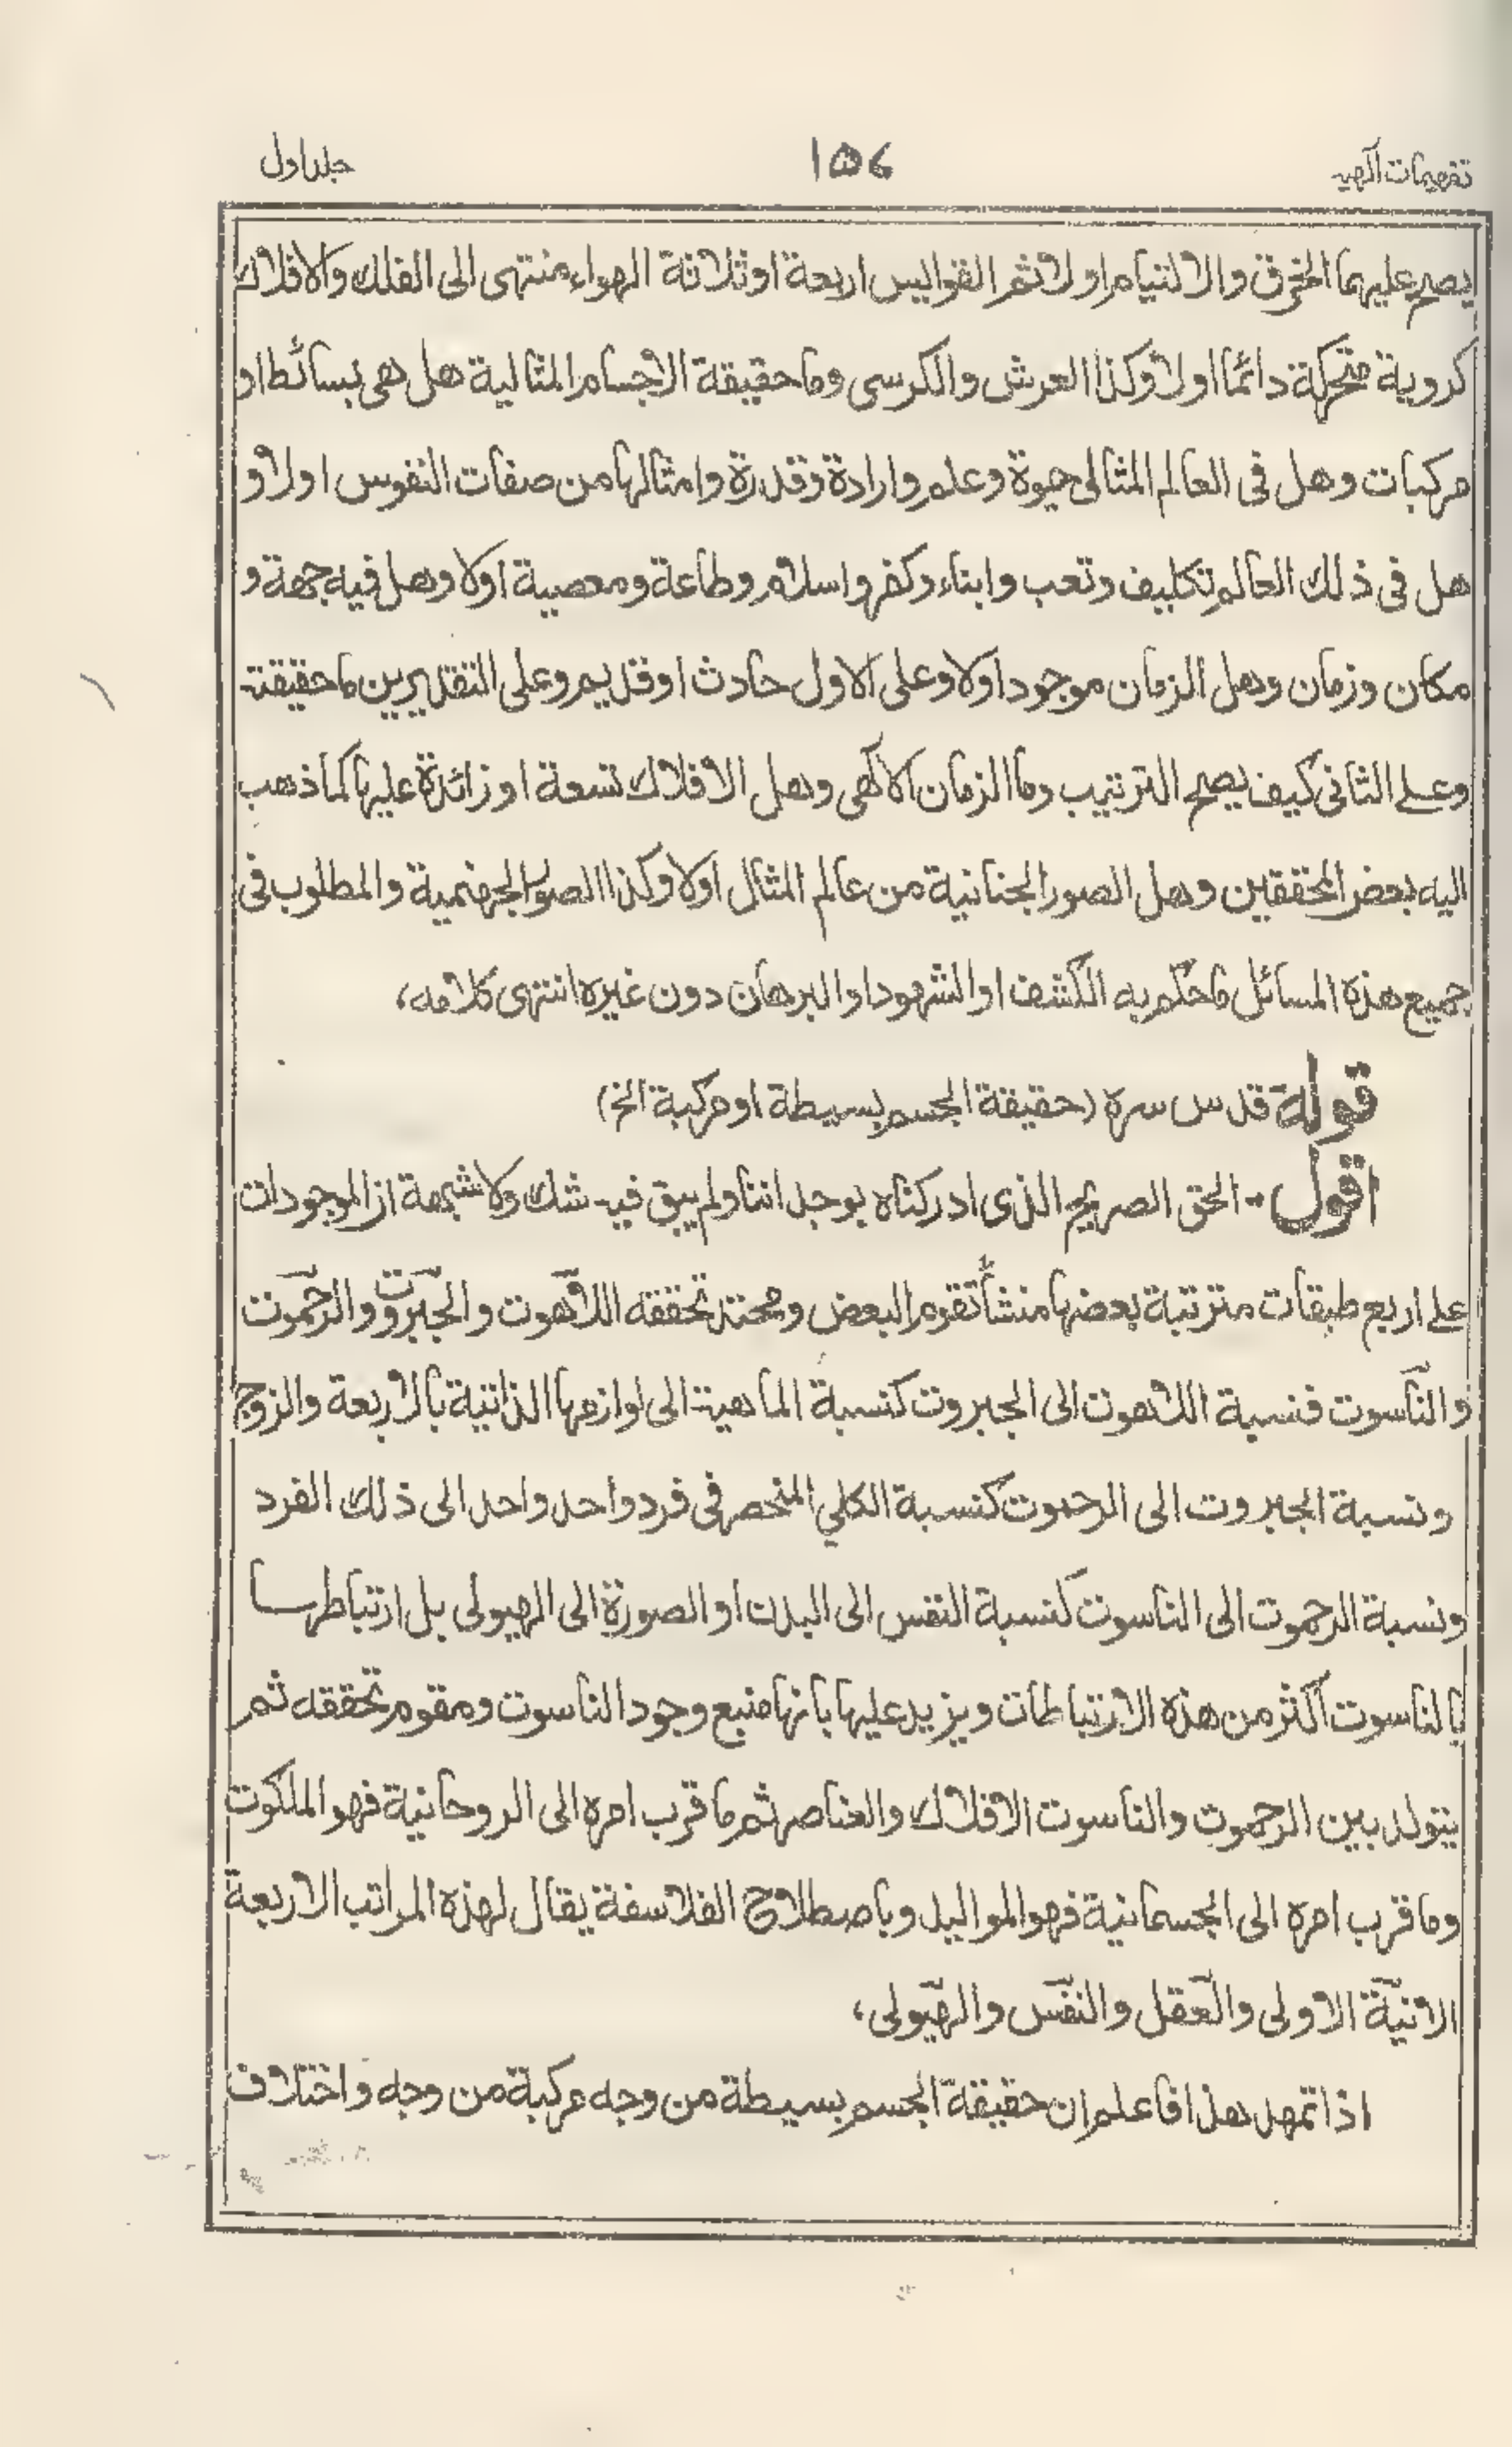 تفهيمات الٓهيه ١٥٦ جلد اول
يصح عليهما الخرق والالتيام اولا ثم القواليس اربعة او ثلاثة الهواء منتهى الى الفلك والافلاك
كروية متحركة دائما اولا وكذا العرش والكرسى وما حقيقة الاجسام المثالية هل هى بسائط او
مركبات وهل فى العالم المثالى حيوة وعلم وارادة وقدرة وامثالها من صفات النفوس اولا و
هل فى ذلك العالم تكليف وتعب وابناء وكفر واسلام وطاعة ومعصية اولا وهل فيه جهة و
مكان وزمان وهل الزمان موجود اولا وعلى الاول حادث او قديم وعلى التقديرين ما حقيقته
وعلى الثانى كيف يصح الترتيب وما الزمان الالٓهى وهل الافلاك تسعة او زائدة عليها كما ذهب
اليه بعض المحققين وهل الصور الجنانية من عالم المثال اولا وكذا الصور الجهنمية والمطلوب فى
جميع هذه المسائل ما حكم به الكشف او الشهود او البرهان دون غيره انتهى كلامه،
قوله قدس سره (حقيقة الجسم بسيطة او مركبة الخ)
اقول - الحق الصريح الذى ادركناه بوجداننا ولم يبق فيه شك ولا شبهة ان الموجودات
على اربع طبقات مترتبة بعضها منشأ تقوم البعض ومحتد تحققه اللاهوت والجبروت والرحموت
والناسوت فنسبة اللاهوت الى الجبروت كنسبة الماهية الى لوازمها الذاتية بالاربعة والزوج
ونسبة الجبروت الى الرحموت كنسبة الكلي المنحصر فى فرد واحد واحد الى ذلك الفرد
ونسبة الرحموت الى الناسوت كنسبة النفس الى البدن او الصورة الى الهيولى بل ارتباطها
بالناسوت اكثر من هذه الارتباطات ويزيد عليها بانها منبع وجود الناسوت ومقوم تحققه ثم
يتولد بين الرحموت والناسوت الافلاك والعناصر ثم ما قرب امره الى الروحانية فهو الملكوت
وما قرب امره الى الجسمانية فهو المواليد وباصطلاح الفلاسفة يقال لهذه المراتب الاربعة
الانيّة الاولى والعقل والنفس والهيولى،
اذا تمهد هذا فاعلم ان حقيقة الجسم بسيطة من وجه مركبة من وجه واختلاف